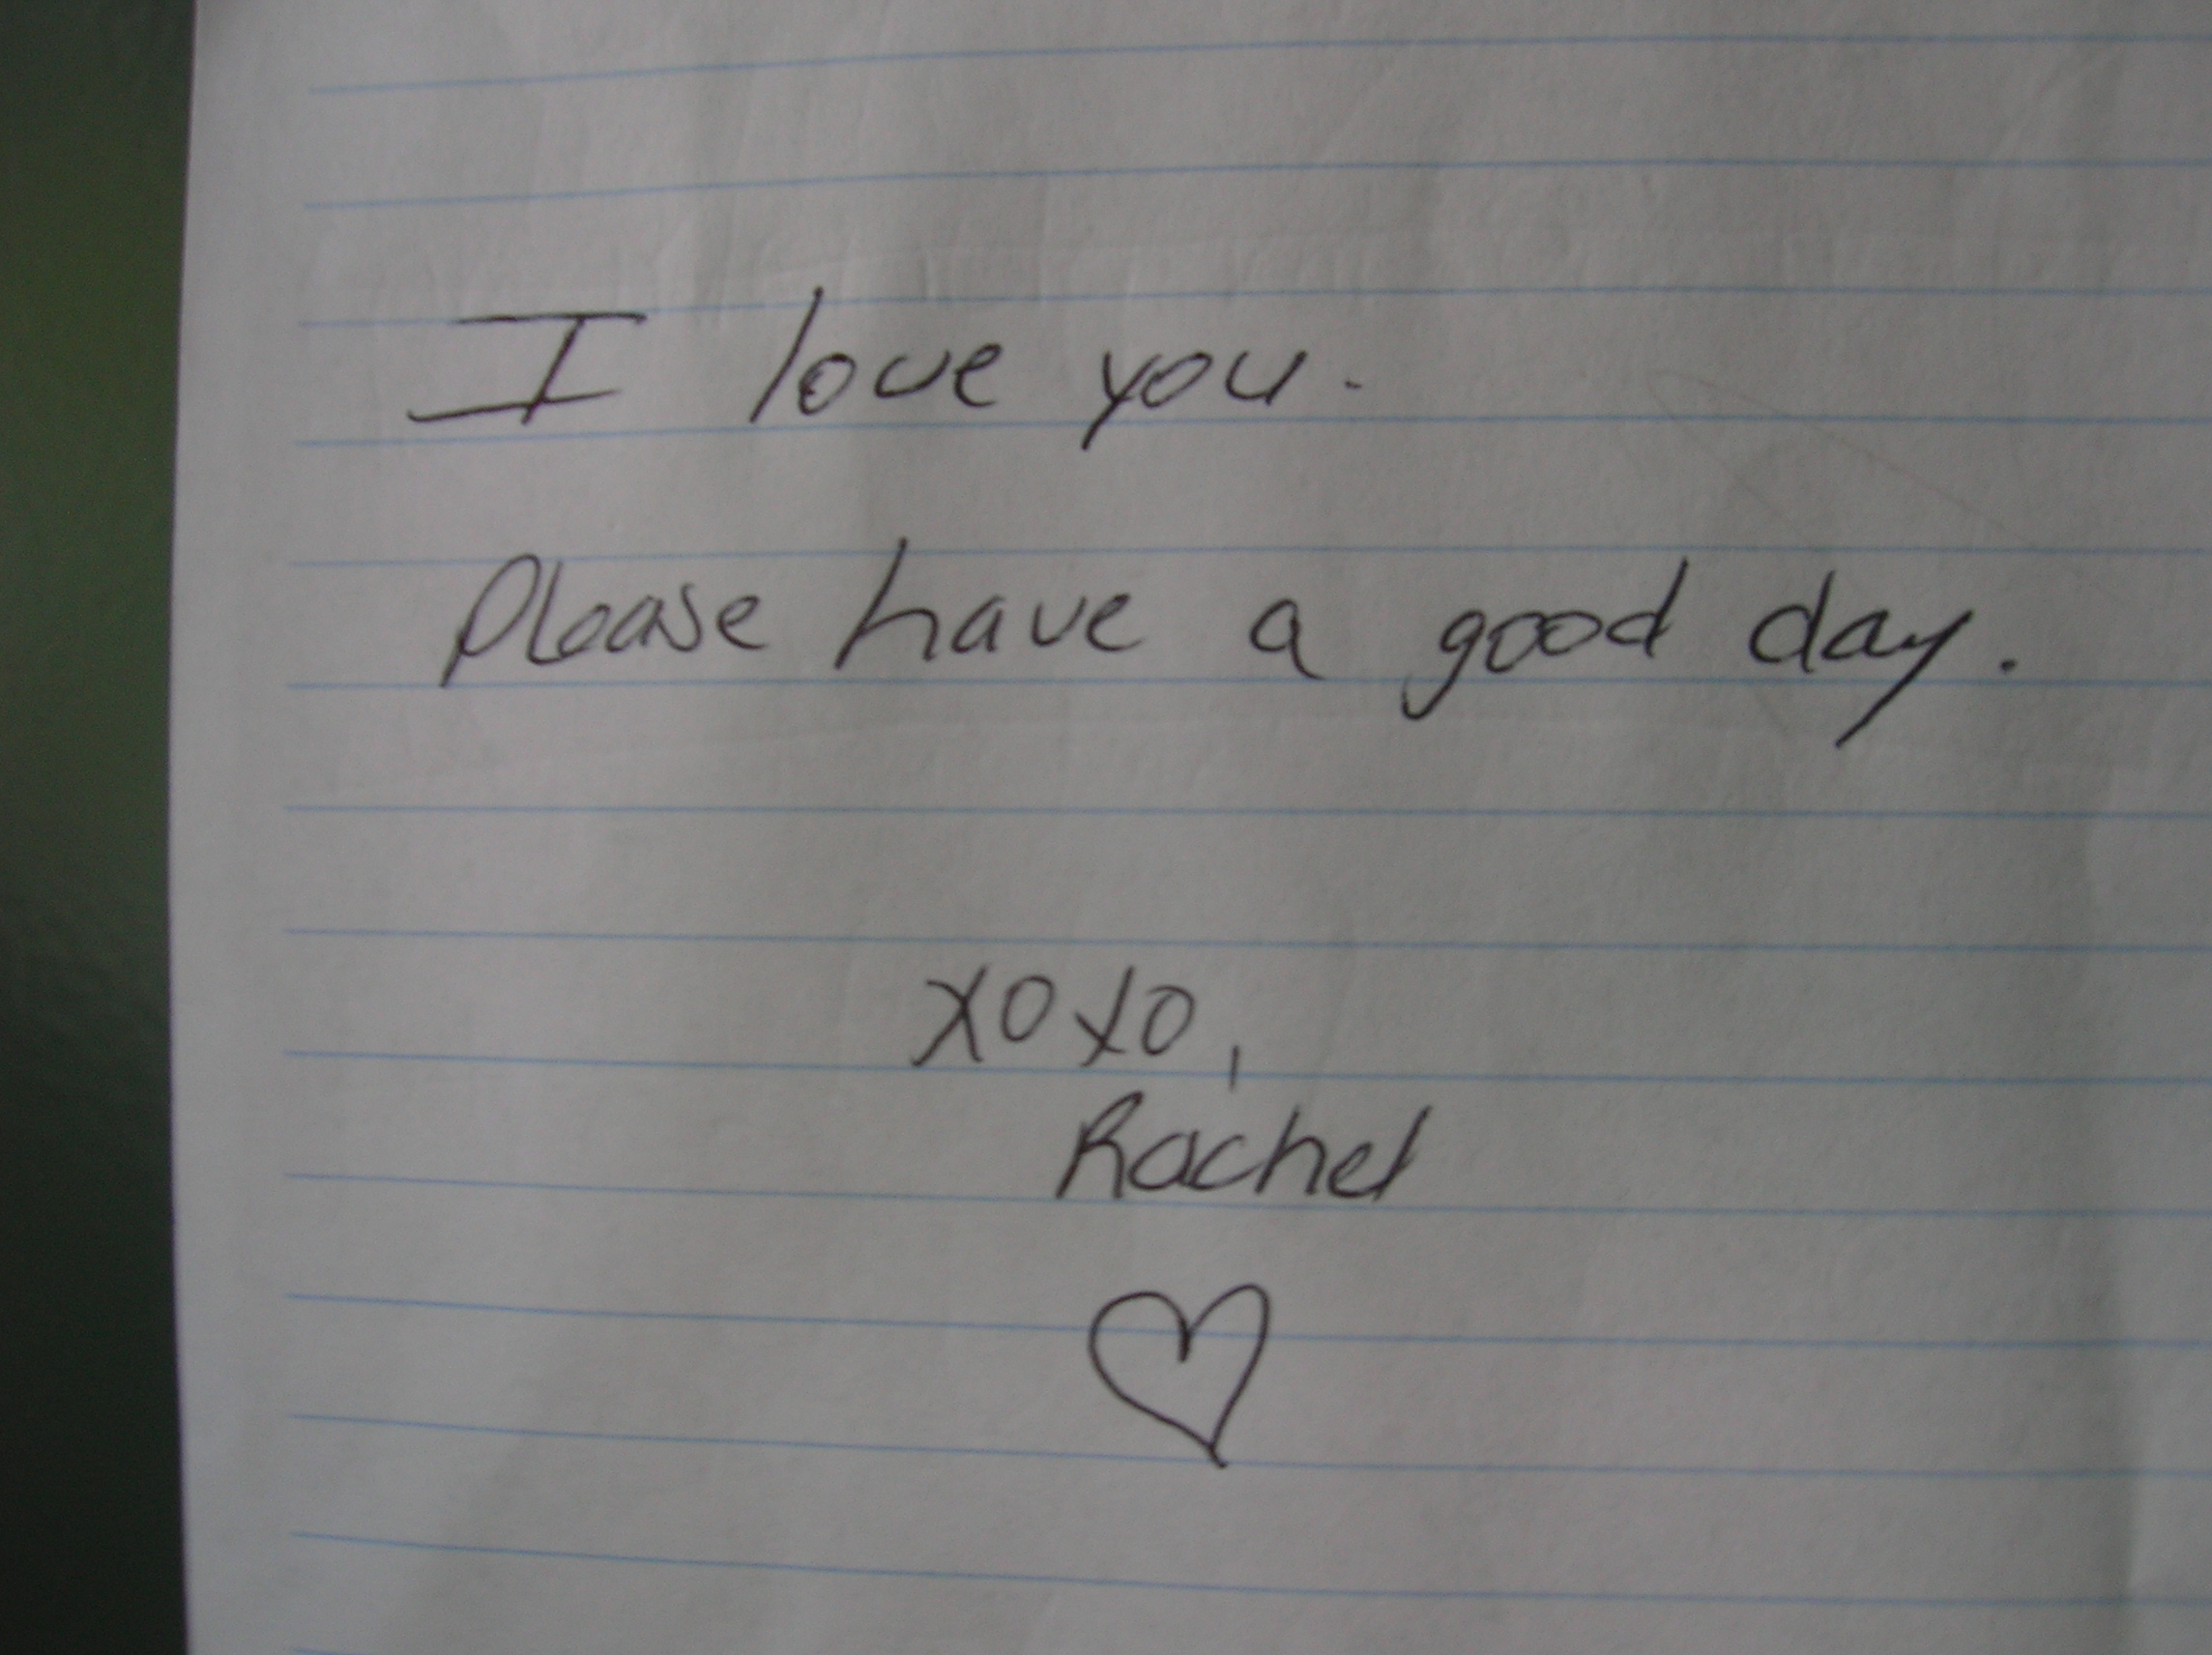 I love you.
Please have a good day.
xoxo,
Rachel